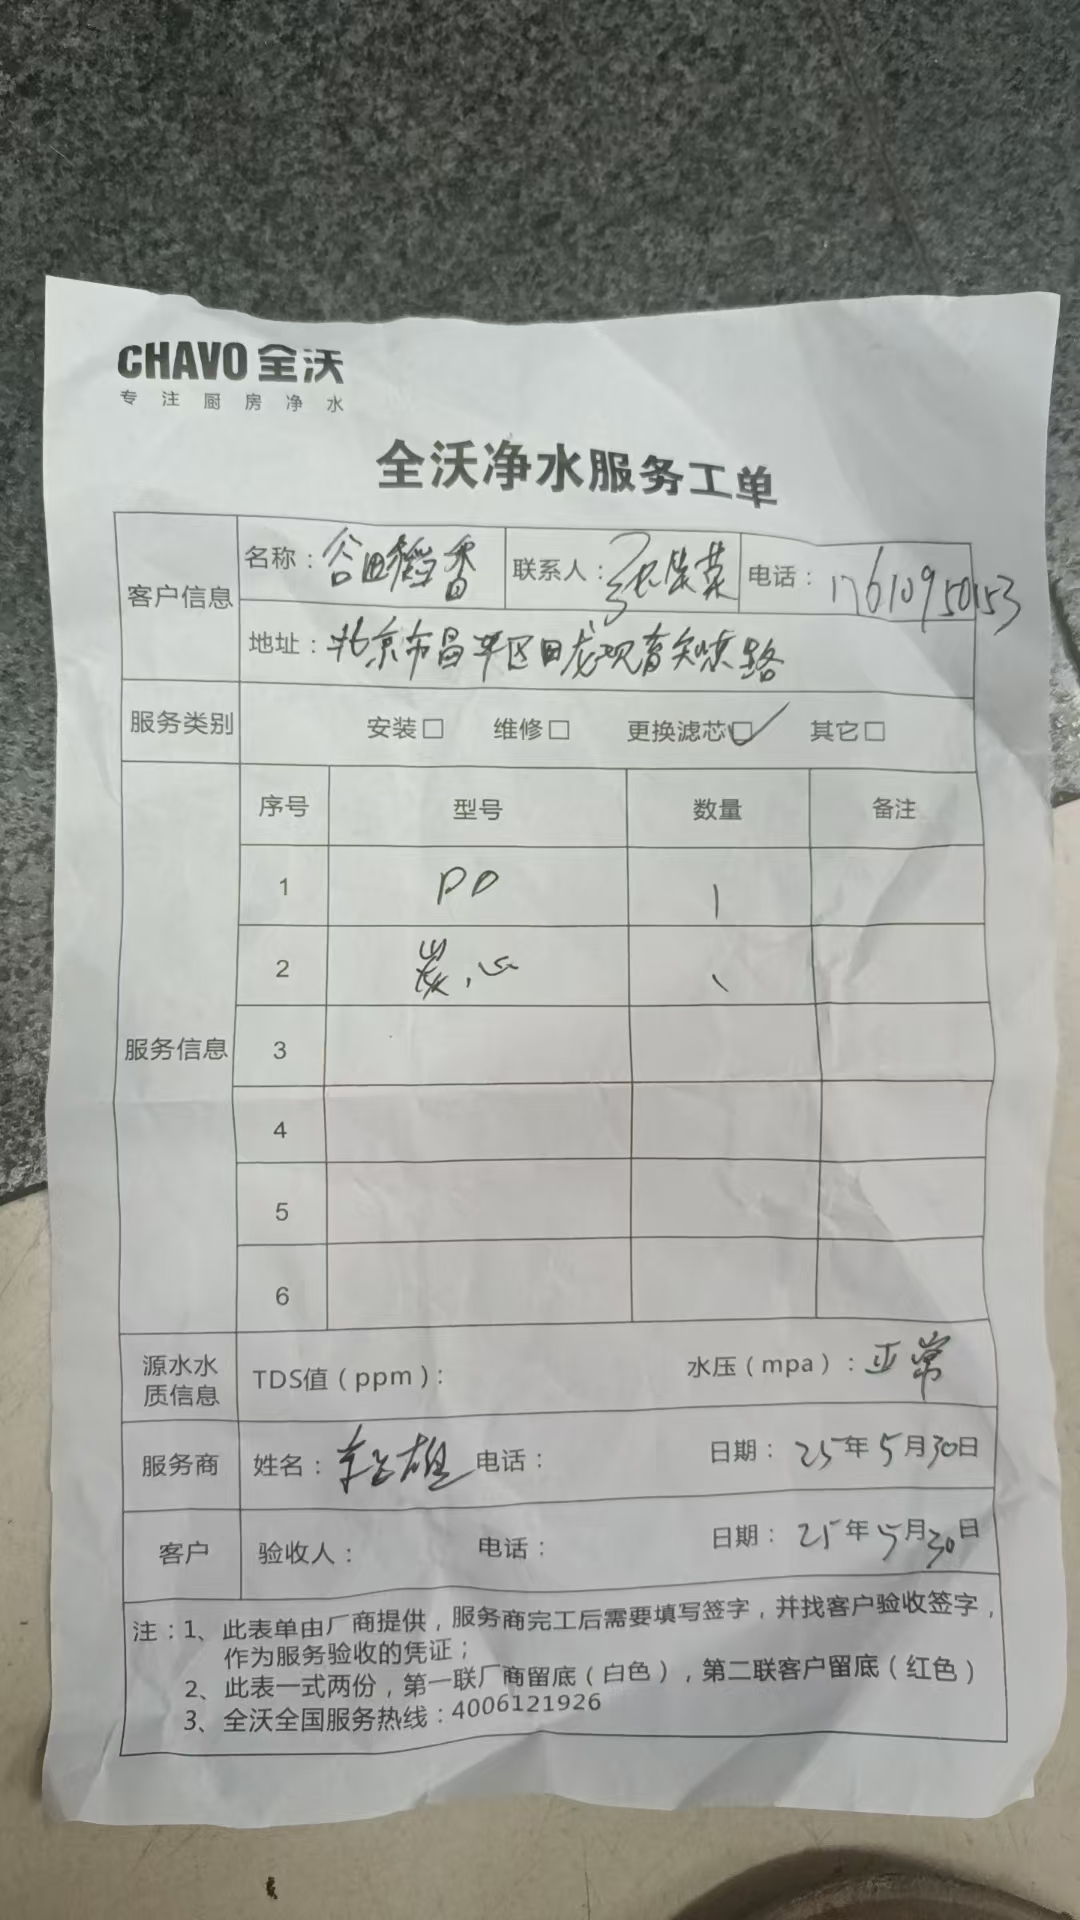 CHAVO 全沃
专注厨房净水
全沃净水服务工单
客户信息
名称：谷田稻香 联系人：张荣 电话：17610950153
地址：北京市昌平区回龙观育知东路
服务类别 安装□ 维修□ 更换滤芯□✓ 其它□
服务信息
序号 型号 数量 备注
1 PP 1
2 炭心 1
3
4
5
6
源水水质信息 TDS值（ppm）： 水压（mpa）：正常
服务商 姓名：雄 电话： 日期：25年5月30日
客户 验收人： 电话： 日期：25年5月30日
注：1、此表单由厂商提供，服务商完工后需要填写签字，并找客户验收签字，
作为服务验收的凭证；
2、此表一式两份，第一联厂商留底（白色），第二联客户留底（红色）
3、全沃全国服务热线：4006121926